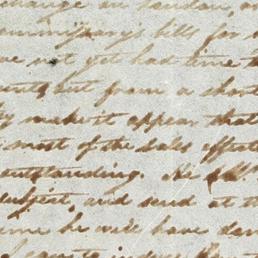 change on London, a
ommissary's bills for
ve not yet had time t
unts, but from a short
ty makes it appear that
most of the sales effected
outstanding. He
subject, and send at th
me he will have